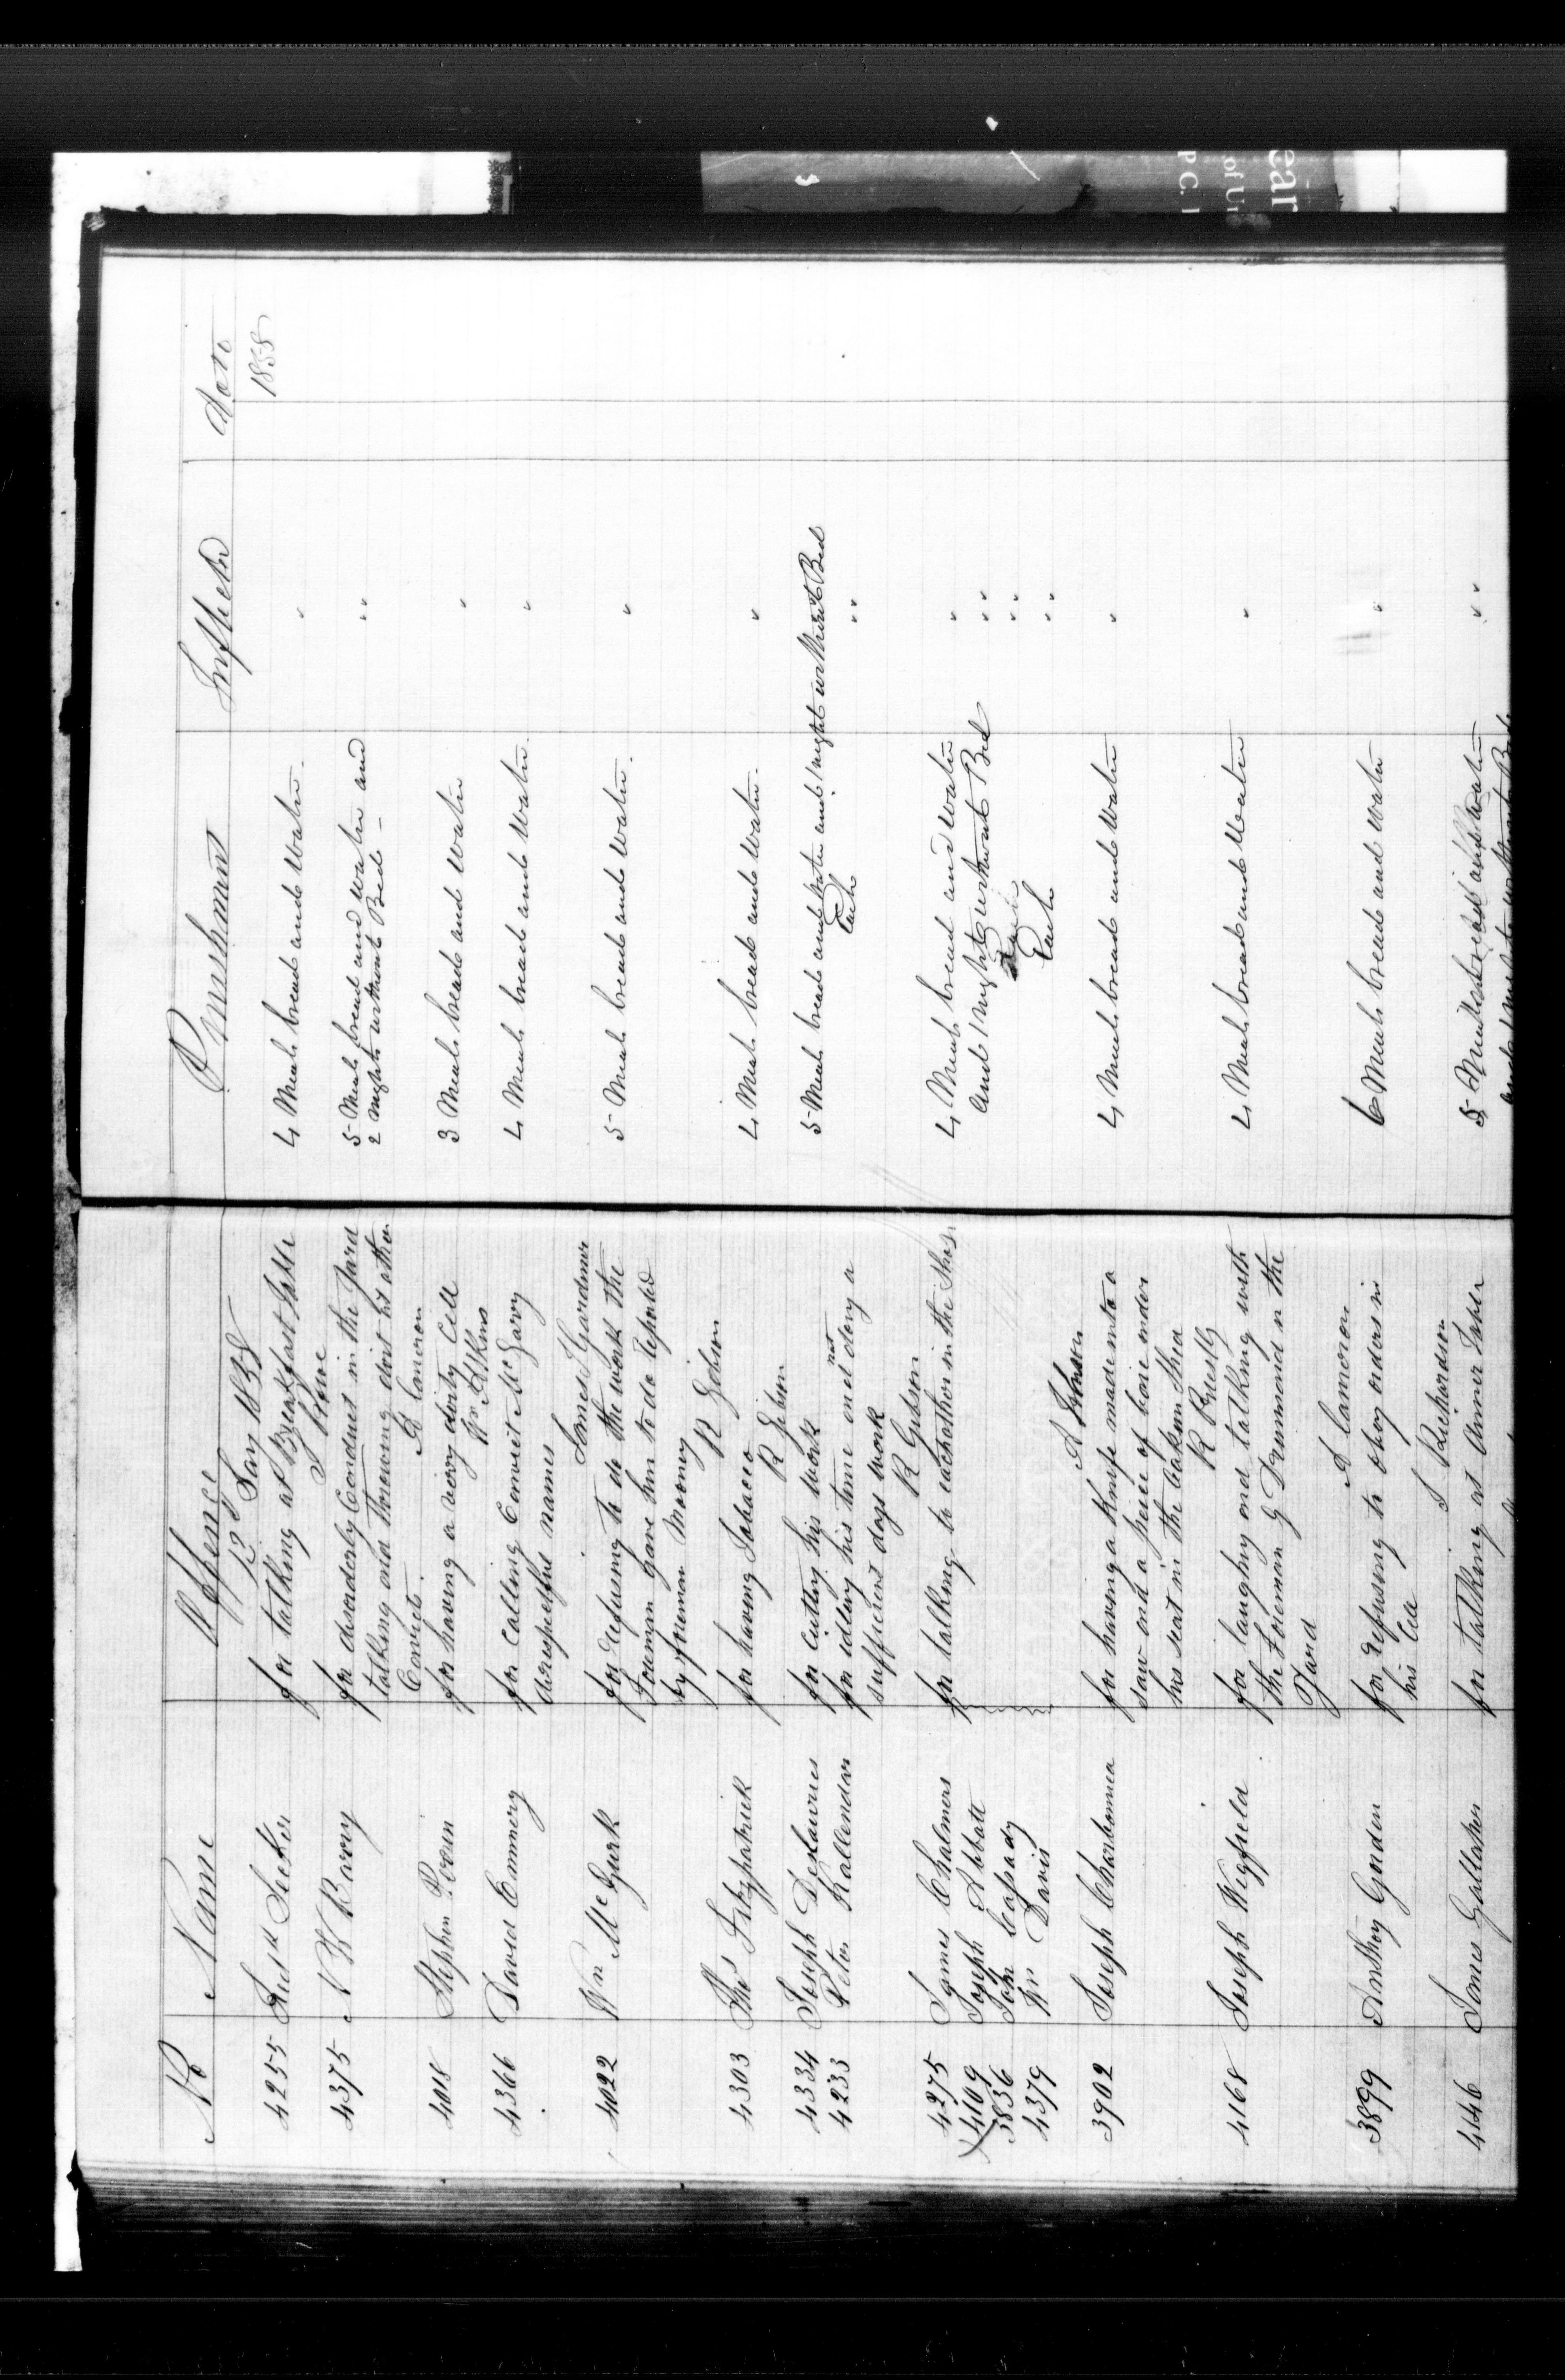 No Name Offence Punishment Inflicted date
13th 1858 1858
4255 Seeker for talking at Breakfast Table 4 Meals bread and Water "
J Rowe
4375 N W Barry for disorderly Conduct in the Yard 5 Meals bread and water and " "
talking and throwing dirt at other 2 nights without Bed
Convicts. A Cameron
4018 Stephen for having a very dirty Cell 3 Meals bread and Water "
Wm Atkins
4366 David Emmery for Calling Convict McGarvy 4 Meals bread and Water "
disrespectful names
James Gardiner
4022 Wm McGurk for refusing to do the work the 5 Meals bread and Water "
Foreman gave him to do Reported
by foreman Mooney
R Gibson
4303 Thos Fitzpatrick for having Tobacco 4 Meals bread and Water "
R Gibson
4334 Joseph Deslauries for Cutting his work 5 Meals bread and Water and 1 night without Bed
4233 Peter Kallendar for idling his time and not doing a Each " "
sufficient days work
R Gibson
4275 James Chalmers for talking to eachother in the Shop 4 Meals bread and Water "
4109 Joseph Abbott and 1 night without Bed " "
3836 John Capsady " "
4379 Wm Davis Each " "
A
3902 Joseph Charbonnea for having a Knife made into a 4 Meals bread and Water "
saw and a piece of bone under
his seat in the Oakum Shed
R Priestly
4168 Joseph Wigfield for laughing and talking with 4 Meals bread and Water "
the Foreman G Drummond in the
Yard
A Cameron
3899 Anthoy Gordon for refusing to obey orders in 6 Meals bread and Water "
his Cell
J Richardson
4146 James Gallaher for talking at dinner Table 5 Meals bread and water " "
and 1 night without Bed
ear
of U
P.C.